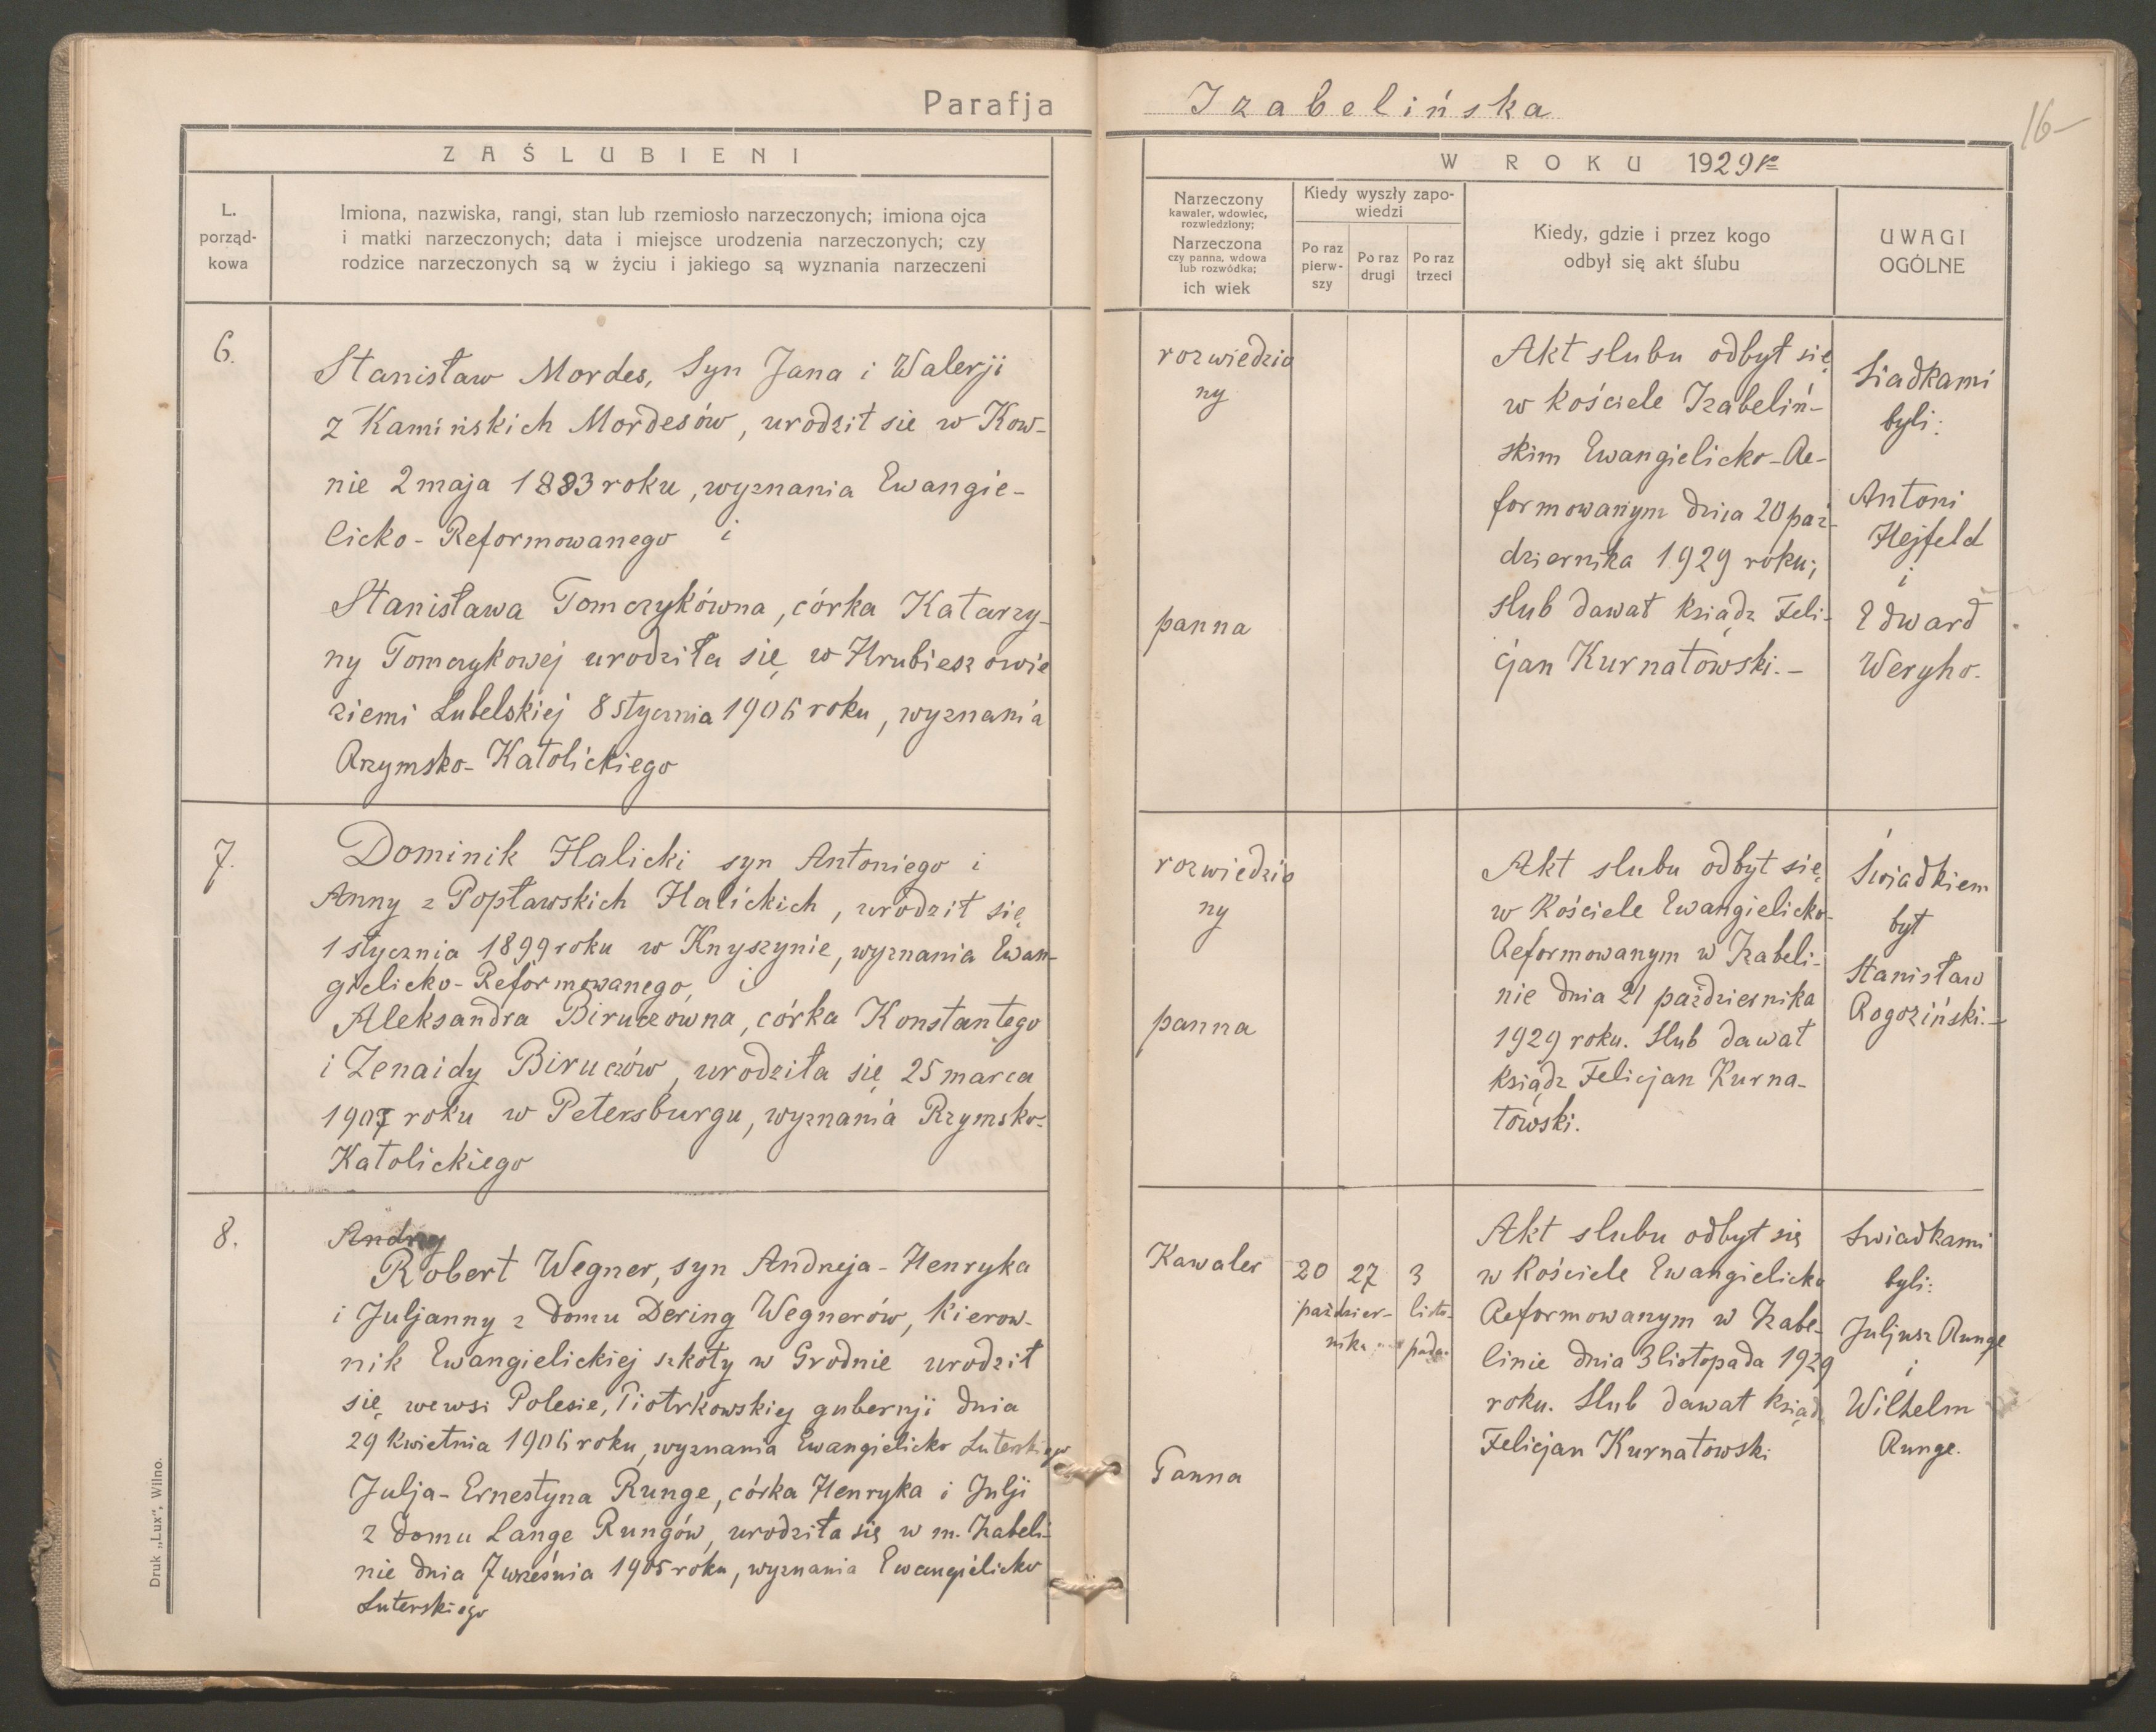 Parafja Izabelińska
16-
ZAŚLUBIENI
W ROKU 1929 r
L.
porząd-
kowa
Imiona, nazwiska, rangi, stan lub rzemiosło narzeczonych; imiona ojca
i matki narzeczonych; data i miejsce urodzenia narzeczonych; czy
rodzice narzeczonych są w życiu i jakiego są wyznania narzeczeni
Narzeczony
kawaler, wdowiec,
rozwiedziony;
Narzeczona
czy panna, wdowa
lub rozwódka;
ich wiek
Kiedy wyszły zapo-
wiedzi
Po raz
pierw-
szy
Po raz
drugi
Po raz
trzeci
Kiedy, gdzie i przez kogo
odbył się akt ślubu
UWAGI
OGÓLNE
6.
Stanisław Mordes, Syn Jana i Walerji
z Kamińskich Mordesów, urodził sie w Kow-
nie 2 maja 1883 roku, wyznania Ewangie-
licko-Reformowanego i
Stanisława Tomczykówna, córka Katarzy-
ny Tomczykowej urodziła się w Hrubieszowie
ziemi Lubelskiej 8 stycznia 1906 roku, wyznania
Rzymsko-Katolickiego
rozwiedzio
ny
panna
Akt slubu odbył się
w kościele Izabeliń-
skim Ewangielicko-Re-
formowanym dnia 20 paź-
dziernika 1929 roku;
slub dawał ksiądz Feli-
cjan Kurnatowski.-
Siadkami
byli:
Antoni
Hejfeld
i
Edward
Weryho.
7.
Dominik Halicki syn Antoniego i
Anny z Popławskich Halickich, urodził się
1 stycznia 1899 roku w Knyszynie, wyznania Ewan-
gielicko-Reformowanego, i
Aleksandra Biruczówna, córka Konstantego
i Zenaidy Biruczów, urodziła się 25 marca
1907 roku w Petersburgu, wyznania Rzymsko-
Katolickiego
rozwiedzio
ny
panna
Akt slubu odbył się
w Kościele Ewangielicko-
Reformowanym w Izabeli-
nie dnia 21 października
1929 roku. Slub dawał
ksiądz Felicjan Kurna-
towski.
Świadkiem
był
Stanisław
Rogoziński.-
8.
Andrzej
Robert Wegner, syn Andrzeja-Henryka
i Juljanny z domu Dering Wegnerów, kierow-
nik Ewangielickiej szkoły w Grodnie urodził
się we wsi Polesie, Piotrkowskiej gubernji dnia
29 kwietnia 1906 roku, wyznania Ewangielicko Luterskiego
Julja-Ernestyna Runge, córka Henryka i Julji
z domu Lange Rungów, urodziła się w m. Izabeli-
nie dnia 7 września 1905 roku, wyznania Ewangielicko
Luterskiego
Kawaler
Panna
20 27 3
paździer- listo-
nika pada.
Akt slubu odbył się
w Kościele Ewangielicko
Reformowanym w Izabe-
linie dnia 3 listopada 1929
roku. Slub dawał ksiądz
Felicjan Kurnatowski
Swiadkami
byli:
Juljusz Runge
i
Wilhelm
Runge.
Druk „Lux", Wilno.